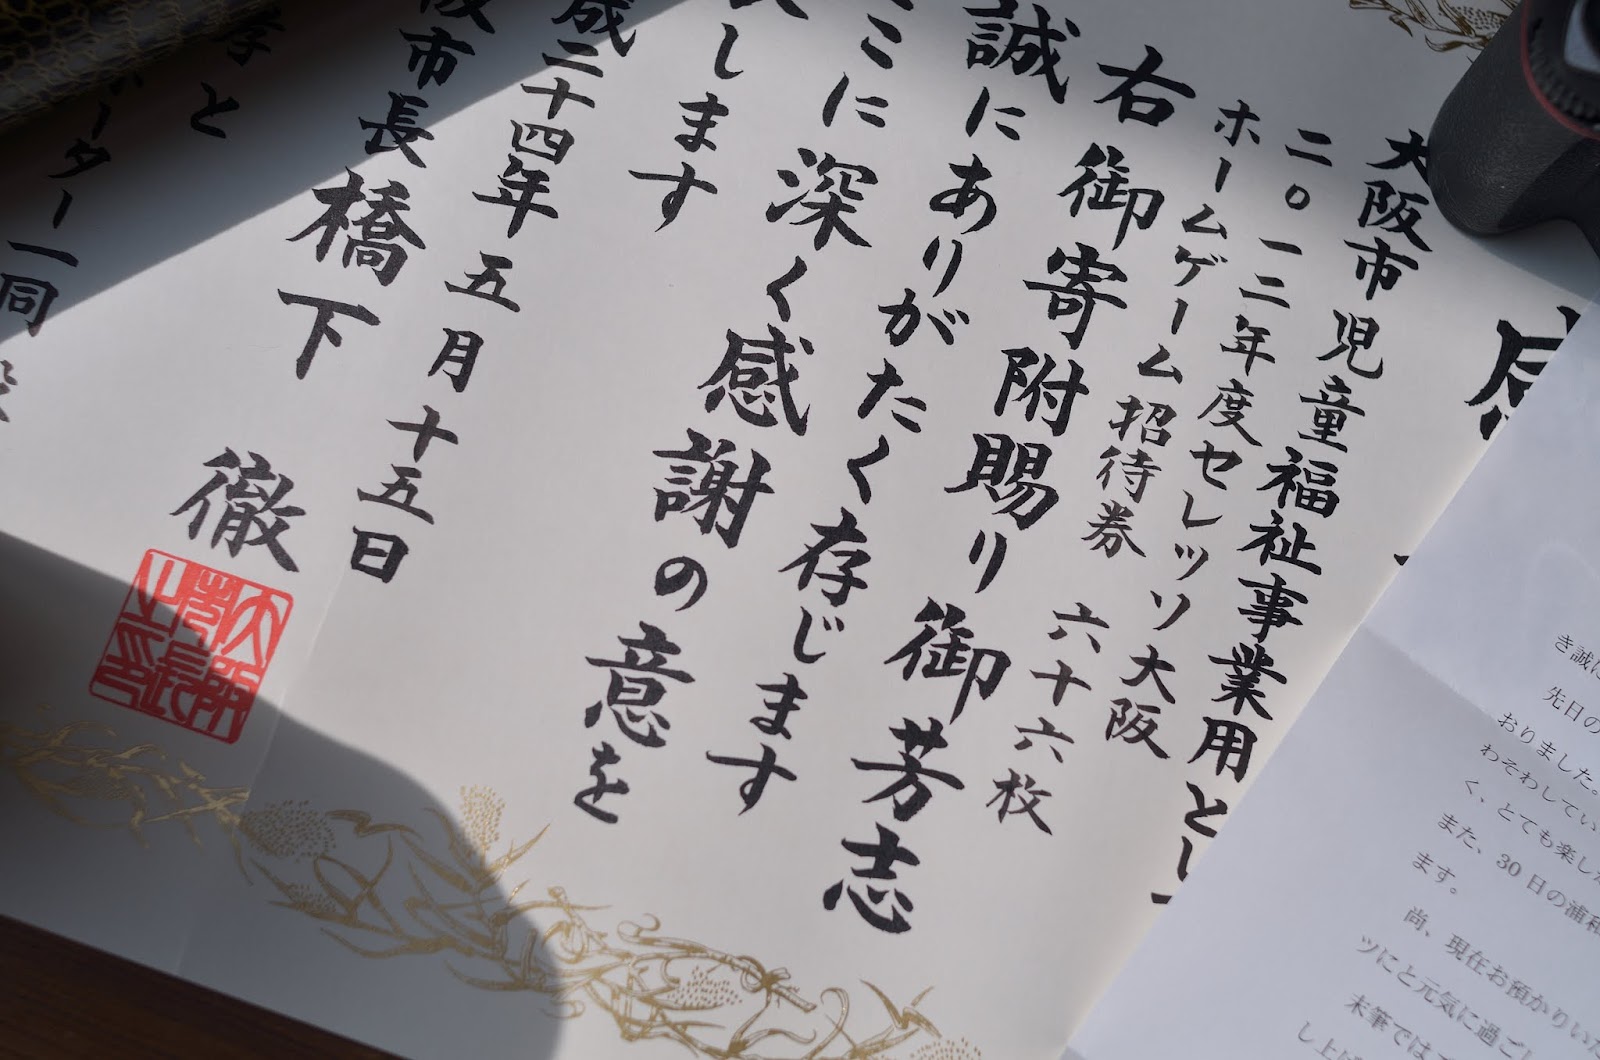 大阪市児童福祉事業用とし
二〇一二年度セレッソ大阪
ホームゲーム招待券 六十六枚
右御寄附賜り御芳志
誠にありがたく存じます
こに深く感謝の意を
します
成二十四年五月十五日
阪市長橋下 徹
孝と
ーター一同
き誠に
先日の
おりました。
わそわしてい
く、とても楽し
また、30日の浦和
ます。
尚、現在お預かりいた
ツにと元気に過ご
末筆では
し上げ